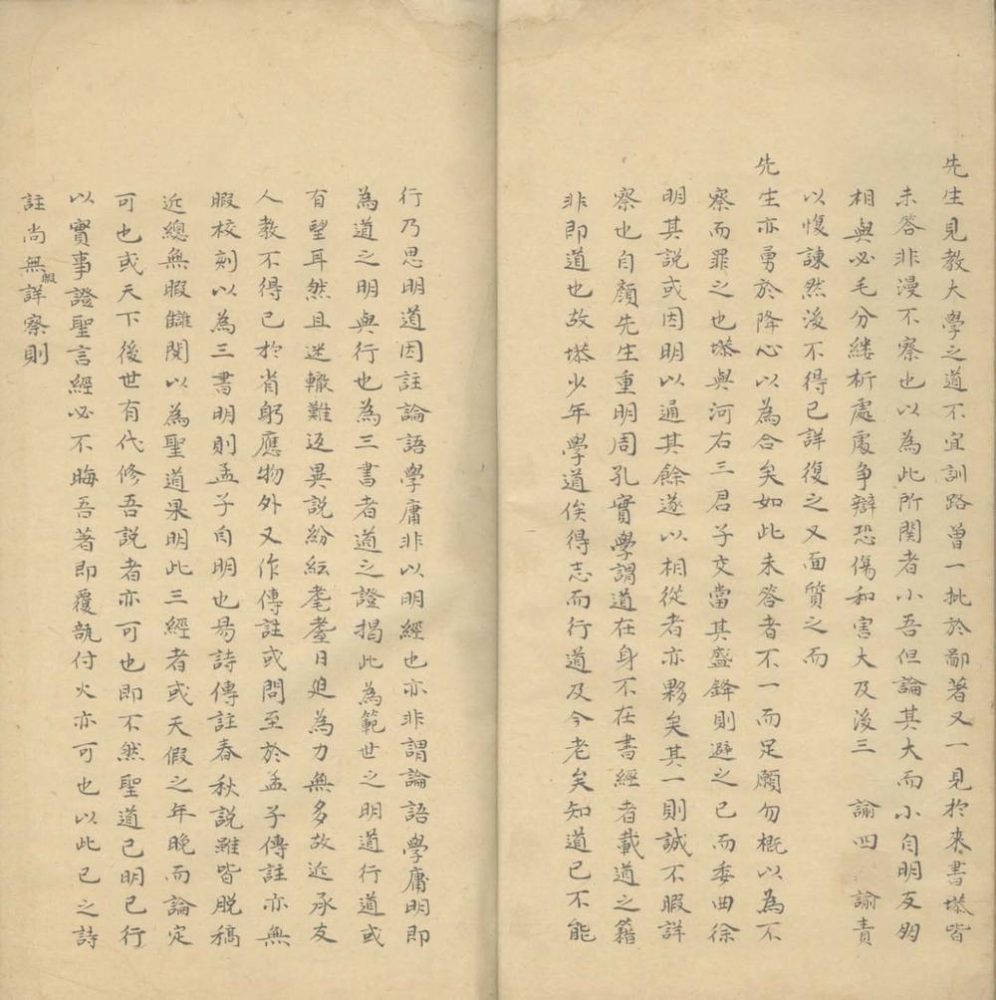 先生見教大學之道不宜訓路曾一批於鄙著又一見於来書塨皆
未答非漫不察也以為此所関者小吾但論其大而小自明友朋
相與必毛分縷析處處争辯恐傷和害大及後三　諭四　諭責
以愎諫然後不得已詳復之又面質之而
先生亦勇於降心以為合矣如此未答者不一而足願勿概以為不
察而罪之也塨與河右三君子交當其盛鋒則避之已而委曲徐
明其説或因明以通其餘遂以相從者亦夥矣其一則誠不暇詳
察也自顏先生重明周孔實學謂道在身不在書經者載道之籍
非即道也故塨少年學道俟得志而行道及今老矣知道已不能
行乃思明道因註論語學庸非以明經也亦非謂論語學庸明即
為道之明與行也為三書者道之證揭此為範世之明道行道或
有望耳然且迷轍難返異説紛紜耄耋日廹為力無多故近承友
人教不得已於省躬應物外又作傳註或問至於孟子傳註亦無
暇校刻以為三書明則孟子自明也昜詩傳註春秋説雖皆脱稿
近總無暇讎閱以為聖道果明此三經者或天假之年晚而論定
可也或天下後世有代修吾説者亦可也即不然聖道已明已行
以實事證聖言經必不晦吾著即覆瓿付火亦可也以此已之詩
註尚無暇詳察則